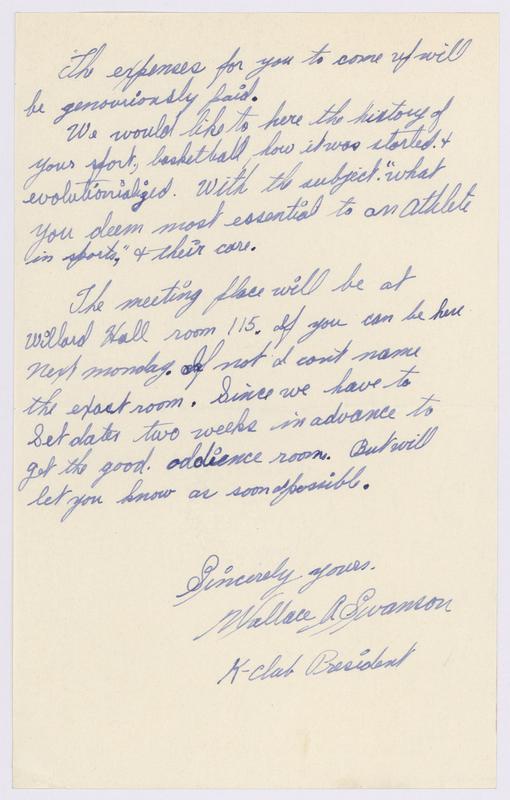 The expenses for you to come up will
be genouriously paid.
We would like to here the history of
your sport, basketball, how it was started &
evolutionialized. With the subject. "what
you deem most essential to an athlete
in sports," & their care.
The meeting place will be at
Willard Hall room 115. If you can be here
next monday. If not I can't name
the exact room. Since we have to
Set dates two weeks in advance to
get the good. addience room. But will
let you know as soon as possible.
Sincirely yours.
Wallace A Swanson
K-club President